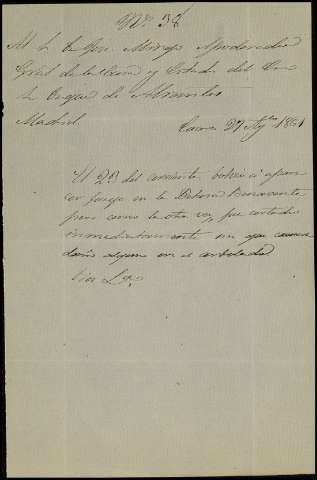 Nº 37
Al Sr Dn José Apoderado
Gral de la Casa y Estados del Exmo
Sr Duque de Abrantes
Madrid
27 Agto 1881
El 23 del corriente volvió a apare
cer fuego en la Dehesa Benavente
pero como la otra vez, fue cortado
inmediatamente sin que causara
daño alguno en el arbolado